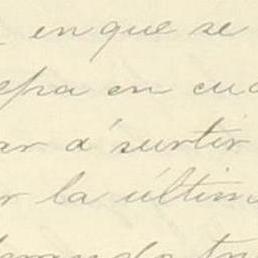 en que se
epa en cua
ar a' surtir
r la últim